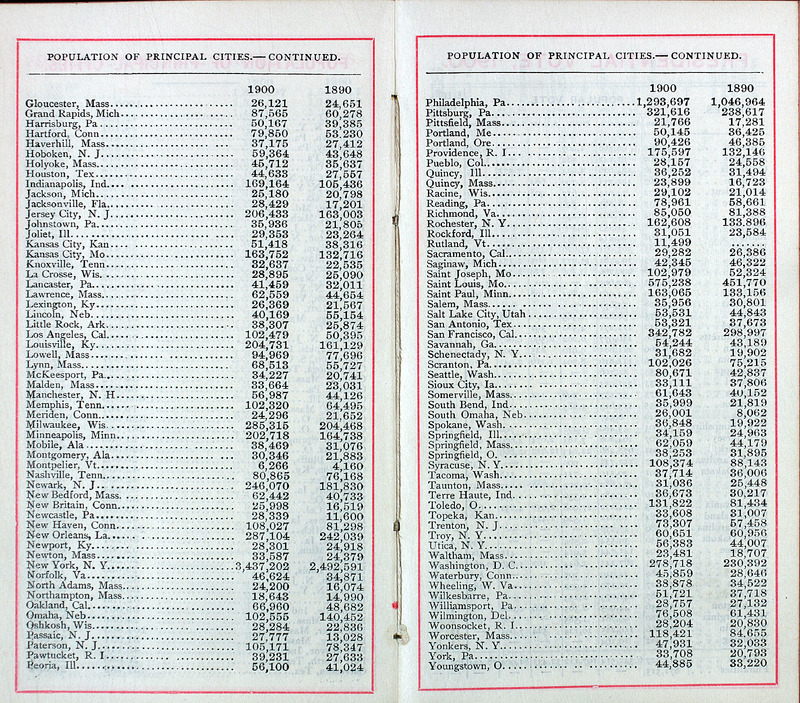 POPULATION OF PRINCIPAL CITIES.— CONTINUED.
1900 1890
Gloucester, Mass. 26,121 24,651
Grand Rapids, Mich 87,565 60,278
Harrisburg, Pa 50,167 39,385
Hartford, Conn 79,850 53,230
Haverhill, Mass. 37,175 27,412
Hoboken, N. J. 59,364 43,648
Holyoke, Mass. 45,712 35,637
Houston, Tex 44,633 27,557
Indianapolis, Ind. 169,164 105,436
Jackson, Mich 25,180 20,798
Jacksonville, Fla. 28,429 17,201
Jersey City, N. J. 206,433 163,003
Johnstown, Pa. 35,936 21,805
Joliet, Ill. 29,353 23,264
Kansas City, Kan 51,418 38,316
Kansas City, Mo 163,752 132,716
Knoxville, Tenn 32,637 22,535
La Crosse, Wis. 28,895 25,090
Lancaster, Pa. 41,459 32,011
Lawrence, Mass. 62,559 44,654
Lexington, Ky. 26,369 21,567
Lincoln, Neb 40,169 55,154
Little Rock, Ark. 38,307 25,874
Los Angeles, Cal. 102,479 50,395
Louisville, Ky. 204,731 161,129
Lowell, Mass 94,969 77,696
Lynn, Mass. 68,513 55,727
McKeesport, Pa. 34,227 20,741
Malden, Mass 33,664 23,031
Manchester, N. H 56,987 44,126
Memphis, Tenn. 102,320 64,495
Meriden, Conn. 24,296 21,652
Milwaukee, Wis 285,315 204,468
Minneapolis, Minn. 202,718 164,738
Mobile, Ala 38,469 31,076
Montgomery, Ala. 30,346 21,883
Montpelier, Vt. 6,266 4,160
Nashville, Tenn. 80,865 76,168
Newark, N. J. 246,070 181,830
New Bedford, Mass. 62,442 40,733
New Britain, Conn. 25,998 16,519
Newcastle, Pa. 28,339 11,600
New Haven, Conn. 108,027 81,298
New Orleans, La. 287,104 242,039
Newport, Ky. 28,301 24,918
Newton, Mass 33,587 24,379
New York, N. Y. 3,437,202 2,492,591
Norfolk, Va 46,624 34,871
North Adams, Mass. 24,200 16,074
Northampton, Mass. 18,643 14,990
Oakland, Cal. 66,960 48,682
Omaha, Neb 102,555 140,452
Oshkosh, Wis. 28,284 22,836
Passaic, N. J. 27,777 13,028
Paterson, N. J. 105,171 78,347
Pawtucket, R. I. 39,231 27,633
Peoria, Ill. 56,100 41,024
POPULATION OF PRINCIPAL CITIES.— CONTINUED.
1900 1890
Philadelphia, Pa. 1,293,697 1,046,964
Pittsburg, Pa. 321,616 238,617
Pittsfield, Mass. 21,766 17,281
Portland, Me 50,145 36,425
Portland, Ore. 90,426 46,385
Providence, R. I. 175,597 132,146
Pueblo, Col. 28,157 24,558
Quincy, Ill. 36,252 31,494
Quincy, Mass. 23,899 16,723
Racine, Wis. 29,102 21,014
Reading, Pa. 78,961 58,661
Richmond, Va. 85,050 81,388
Rochester, N. Y. 162,608 133,896
Rockford, Ill. 31,051 23,584
Rutland, Vt. 11,499 .......
Sacramento, Cal. 29,282 26,386
Saginaw, Mich. 42,345 46,322
Saint Joseph, Mo 102,979 52,324
Saint Louis, Mo. 575,238 451,770
Saint Paul, Minn. 163,065 133,156
Salem, Mass. 35,956 30,801
Salt Lake City, Utah 53,531 44,843
San Antonio, Tex 53,321 37,673
San Francisco, Cal. 342,782 298,997
Savannah, Ga. 54,244 43,189
Schenectady, N. Y. 31,682 19,902
Scranton, Pa. 102,026 75,215
Seattle, Wash. 80,671 42,837
Sioux City, Ia. 33,111 37,806
Somerville, Mass. 61,643 40,152
South Bend, Ind. 35,999 21,819
South Omaha, Neb. 26,001 8,062
Spokane, Wash. 36,848 19,922
Springfield, Ill. 34,159 24,963
Springfield, Mass. 62,059 44,179
Springfield, O. 38,253 31,895
Syracuse, N. Y. 108,374 88,143
Tacoma, Wash. 37,714 36,006
Taunton, Mass. 31,036 25,448
Terre Haute, Ind. 36,673 30,217
Toledo, O. 131,822 81,434
Topeka, Kan. 33,608 31,007
Trenton, N. J. 73,307 57,458
Troy, N. Y. 60,651 60,956
Utica, N. Y. 56,383 44,007
Waltham, Mass. 23,481 18,707
Washington, D. C. 278,718 230,392
Waterbury, Conn. 45,859 28,646
Wheeling, W. Va. 38,878 34,522
Wilkesbarre, Pa. 51,721 37,718
Williamsport, Pa. 28,757 27,132
Wilmington, Del. 76,508 61,431
Woonsocket, R. I. 28,204 20,830
Worcester, Mass. 118,421 84,655
Yonkers, N. Y. 47,931 32,033
York, Pa. 33,708 20,793
Youngstown, O. 44,885 33,220